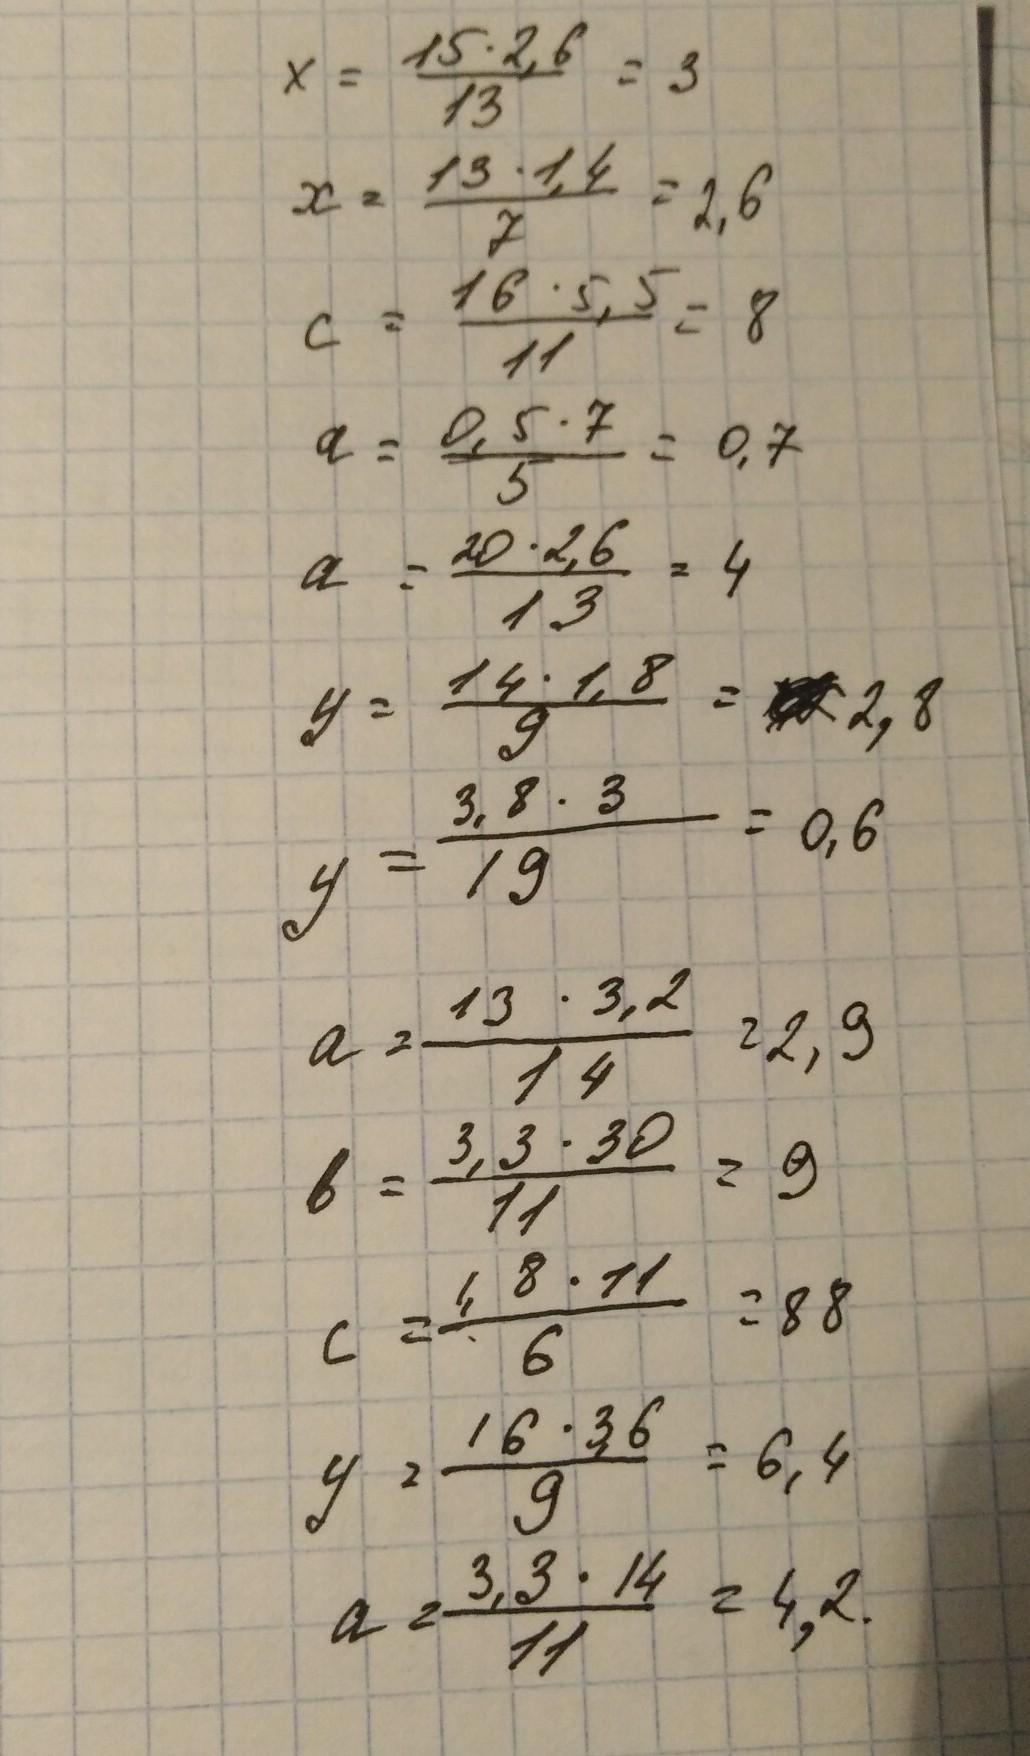 x = 15·2,6/13 = 3
x = 13·1,4/7 = 2,6
c = 16·5,5/11 = 8
a = 0,5·7/5 = 0,7
a = 20·2,6/13 = 4
y = 14·1,8/9 = 2,8
y = 3,8·3/19 = 0,6
a = 13·3,2/14 = 2,9
b = 3,3·30/11 = 9
c = 4,8·11/6 = 88
y = 16·3,6/9 = 6,4
a = 3,3·14/11 = 4,2.